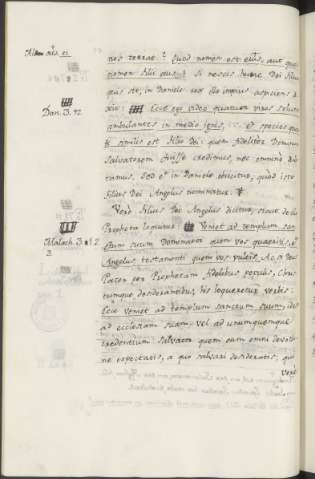 nos terrae? Quod nomen est eius, aut quod
nomen filii eius? Si nescis hunc Dei filium
quis sit, in Daniele rex ille impius aspiciens
Dan. 3. 92
Ecce ego video quatuor viros solutos
ambulantes in medio ignis, et species quar
ti similis est filio Dei: quem fideliter Dominum
Salvatorem fuisse credimus, nec omnino dubi
tamus. Sed et in Daniele dicitur, quod iste
filius Dei Angelus nominatur.
Vere filius Dei Angelus dicitur, sicut in
Propheta legimus: Veniet ad templum san
Malach. 3.
ctum suum Dominator quem vos quaeritis, et
Angelus testamenti quem vos vultis. Ac si Deus
Pater per Prophetam fidelibus populis, Chris
tumque desiderantibus, his loqueretur verbis:
Ecce veniet ad templum sanctum suum, id est
ad ecclesiam suam: vel ad unumquemque
credentium. Salvator quem cum omni devotio
ne expectatis, a quo salvari desideratis, qui
vere